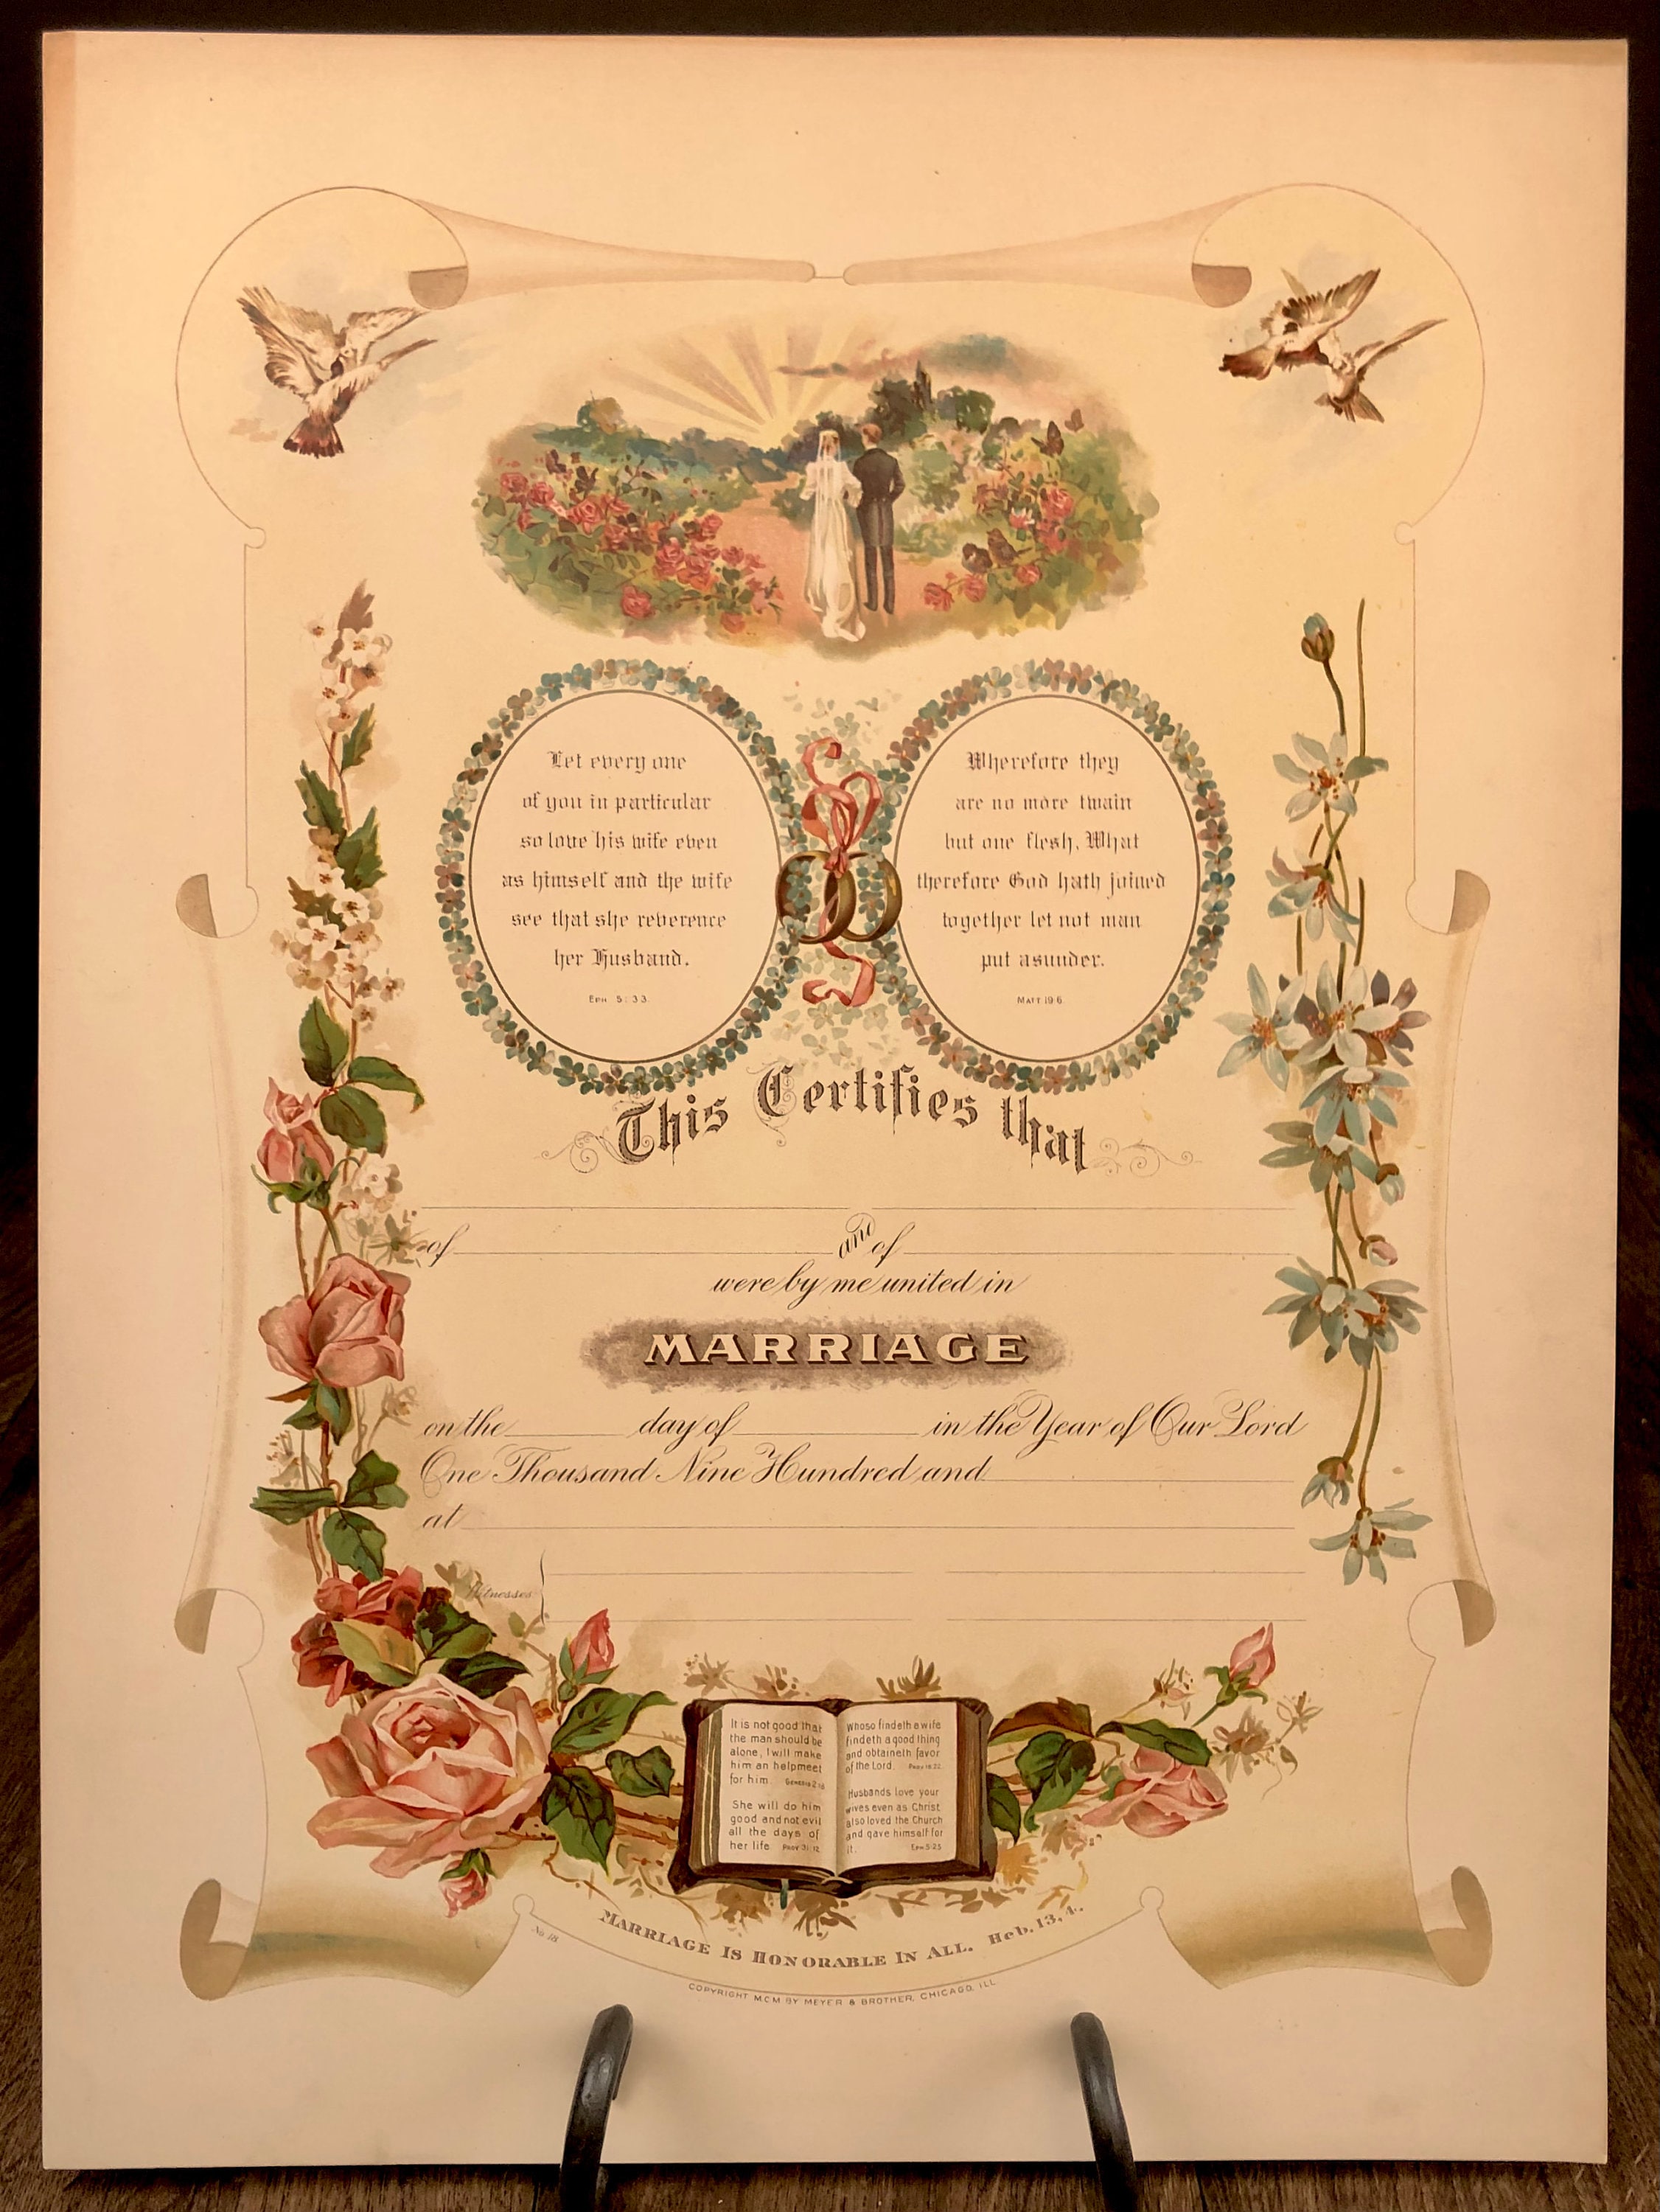 Let every one
of you in particular
so love his wife even
as himself and the wife
see that she reverence
her Husband.
Eph 5:33.
Wherefore they
are no more twain
but one flesh, What
therefore God hath joined
together let not man
put asunder.
Matt 19 6.
This Certifies that
and
of of
were by me united in
MARRIAGE
on the day of in the Year of Our Lord
One Thousand Nine Hundred and
at
Witnesses
It is not good that
the man should be
alone, I will make
him an helpmeet
for him. Genesis 2 18
She will do him
good and not evil
all the days of
her life Prov 31 12
Whoso findeth a wife
findeth a good thing
and obtaineth favor
of the Lord. Prov 18 22.
Husbands love your
wives even as Christ
also loved the Church
and gave himself for
it. Eph 5:25
No 18
MARRIAGE IS HONORABLE IN ALL. Heb. 13, 4.
COPYRIGHT MCM BY MEYER & BROTHER, CHICAGO, ILL